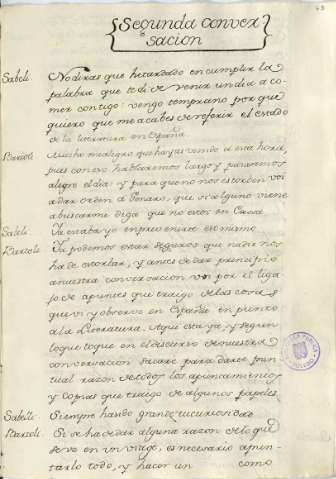 Segunda conver
sacion
Saboli. No diras que he tardado en cumplir la
palabra que te di de venir un dia a co-
mer contigo: vengo temprano por que
quiero que me acabes de referir el estado
de la literatura en España
Bartoli. Mucho me alegro que hayas venido a esta hora,
pues con eso hablaremos largo y pasaremos
alegre el dia: y para que no nos estorben voi
a dar orden a Genaro, que si alguno viene
a buscarme diga que no estoi en Casa
Saboli. Ya estaba yo en prevenirte eso mismo
Bartoli. Ya podemos estar seguros que nadie nos
ha de estorbar, y antes de dar principio
a nuestra conversacion voi por el liga-
jo de apuntes que traigo de las cosas
que vi y observe en España en punto
a la Literatura. Aqui esta ya, y segun
lo que toque en el discurso de nuestra
conversacion sacare para darte pun-
tual razon de todos los apuntamientos
y copias que traigo de algunos papeles.
Sabelli. Siempre has sido grande
Bartoli. Si se ha de dar alguna razon de lo que
se ve en un viage, es necesario apun-
tarlo todo, y hacer un como